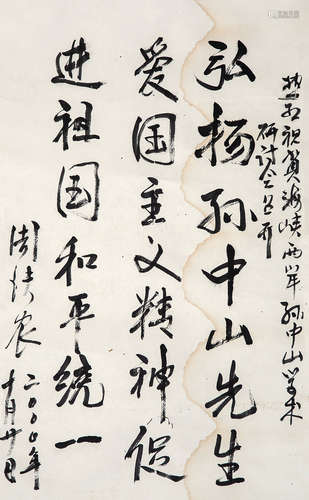 热烈祝贺海峡两岸孙中山学术
研讨会召开
弘扬孙中山先生
爱国主义精神促
进祖国和平统一
周铁农
二〇〇〇年
十月十日